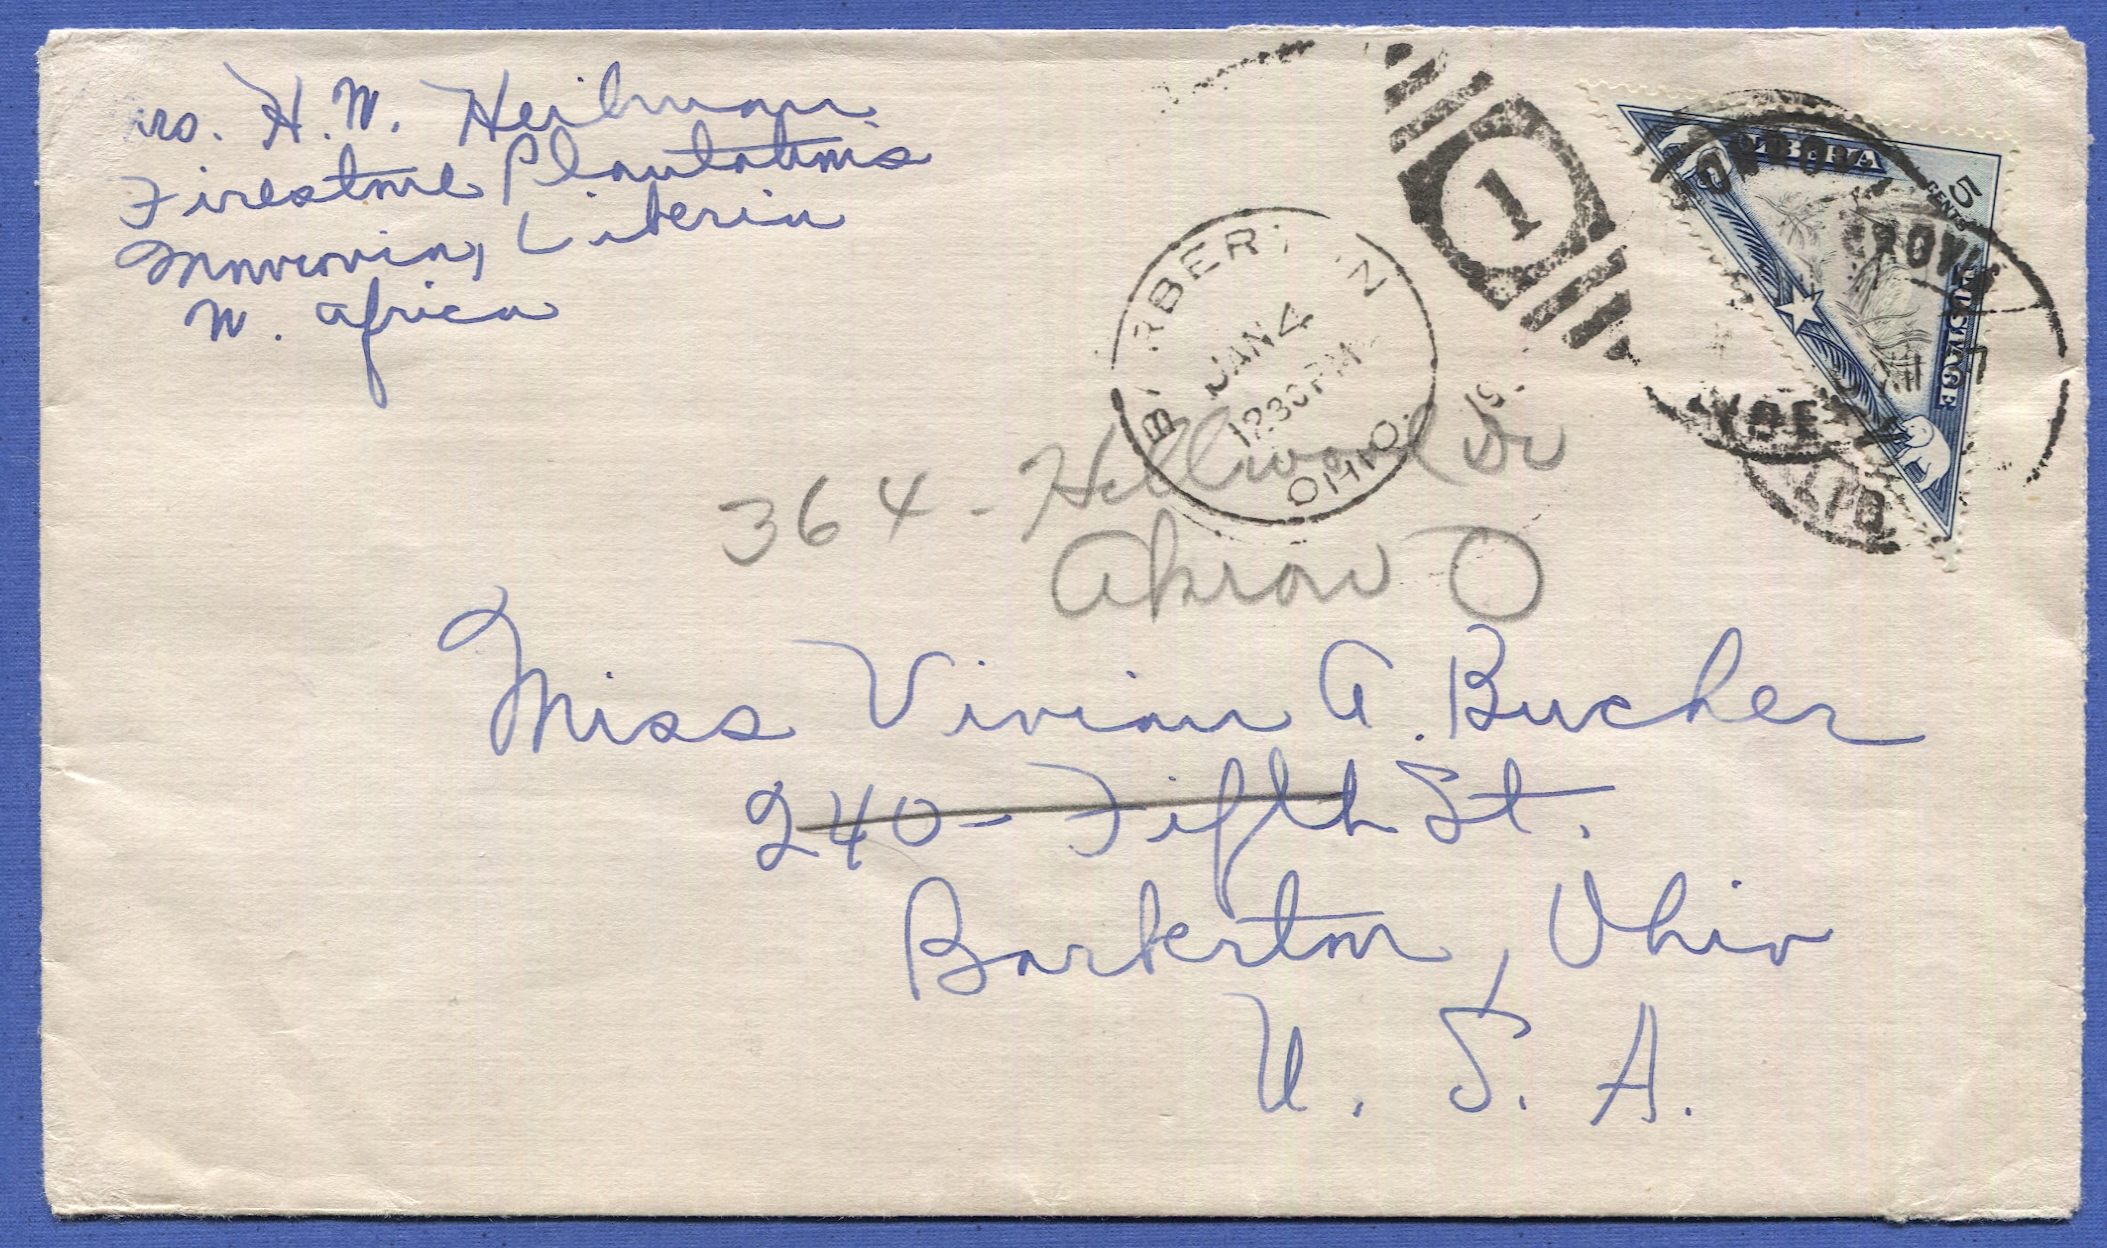 Mrs. H. W. Heilman
Firestone Plantations
Monrovia, Liberia
W. Africa
1
LIBERIA
5
CENTS
POSTAGE
BARBERTON
JAN 4
1230 PM
OHIO.
364 - Hillwood Dr
Akron O
Miss Vivian A. Bucher
240 - Fifth St.
Barberton, Ohio
U. S. A.